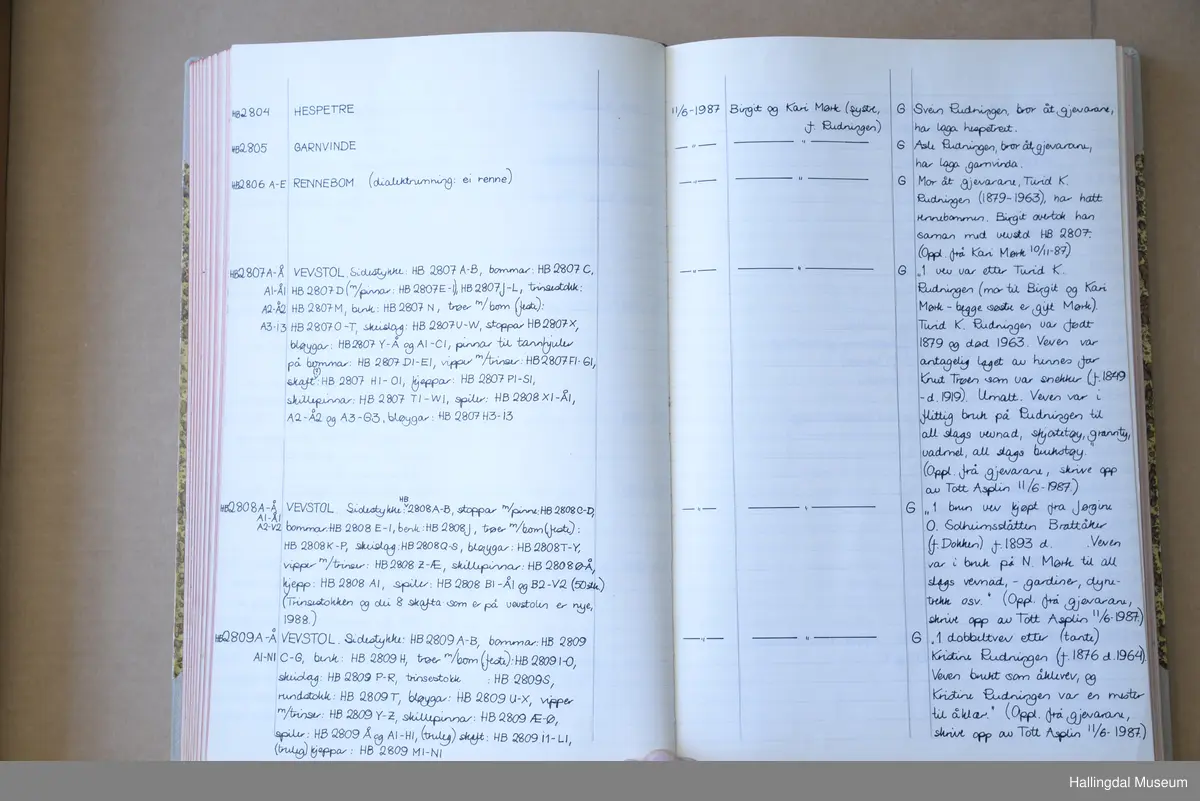 HB2804 HESPETRE 11/6-1987 Birgit og Kari Mørk (systre, G Svein Rudningen, bror åt gjevarane,
f. Rudningen) har laga hespetreet.
HB2805 GARNVINDE —"— —"— G Asle Rudningen, bror åt gjevarane,
har laga garnvinda.
HB2806 A-E RENNEBOM (dialektnemning: ei renne) —"— —"— G Mor åt gjevarane, Turid K.
Rudningen (1879-1963), har hatt
rennebommen. Birgit overtok han
saman med vevstol HB 2807.
(Oppl. frå Kari Mørk 10/11-87)
HB2807 A-Å VEVSTOL. Sidestykke: HB 2807 A-B, bommar: HB 2807 C, —"— —"— G "1 vev var etter Turid K.
A1-Å1 HB 2807 D (m/pinnar: HB 2807 E-I), HB 2807 J-L, trinsestokk: Rudningen (mor til Birgit og Kari
A2-Å2 HB 2807 M, benk: HB 2807 N, trøer m/bom (feste): Mørk - begge søstre er gift Mørk).
A3-I3 HB 2807 O-T, skeislag: HB 2807 U-W, stoppar HB 2807 X, Turid K. Rudningen var født
bløygar: HB 2807 Y-Å og A1-C1, pinnar til tannhjuler 1879 og død 1963. Veven var
på bommar: HB 2807 D1-E1, vipper m/trinser: HB 2807 F1-G1, antagelig laget av hennes far
skaft: HB 2807 H1-O1, kjeppar: HB 2807 P1-S1, Knut Trøen som var snekker (f. 1849
skillepinnar: HB 2807 T1-W1, spiler: HB 2808 X1-Å1, -d. 1919). Umalt. Veven var i
A2-Å2 og A3-G3, bløygar: HB 2807 H3-I3 flittig bruk på Rudningen til
all slags vevnad, skjøtetøy, grannty,
vadmel, all slags brukstøy."
(Oppl. frå gjevarane, skrive opp
av Tott Asplin 11/6-1987.)
HB2808 A-Å VEVSTOL. Sidestykke: HB 2808 A-B, stoppar m/pinne: HB 2808 C-D, —"— —"— G "1 brun vev kjøpt fra Jørgine
A1-Å1 bommar: HB 2808 E-I, benk: HB 2808 J, trøer m/bom (feste): O. Solheimslåtten Brattåker
A2-V2 HB 2808 K-P, skeislag: HB 2808 Q-S, bløygar: HB 2808 T-Y, (f. Dokken) f. 1893 d. . Veven
vipper m/trinser: HB 2808 Z-Æ, skillepinnar: HB 2808 Ø-Å, var i bruk på N. Mørk til all
kjepp: HB 2808 A1, spiler: HB 2808 B1-Å1 og B2-V2 (50 stk) slags vevnad, - gardiner, dyne-
(Trinsestokken og dei 8 skafta som er på vevstolen er nye, trekk osv." (Oppl. frå gjevarane,
1988.) skrive opp av Tott Asplin 11/6-1987.)
HB2809 A-Å VEVSTOL. Sidestykke: HB 2809 A-B, bommar: HB 2809 —"— —"— G "1 dobbeltvev etter (tante)
A1-N1 C-G, benk: HB 2809 H, trøer m/bom (feste): HB 2809 I-O, Kristine Rudningen (f. 1876 d. 1964).
skeislag: HB 2809 P-R, trinsestokk : HB 2809 S, Veven brukt som åklevev, og
rundstokk: HB 2809 T, bløygar: HB 2809 U-X, vipper Kristine Rudningen var en mester
m/trinser: HB 2809 Y-Z, skillepinnar: HB 2809 Æ-Ø, til åklær." (Oppl. frå gjevarane,
spiler: HB 2809 Å og A1-H1, (truleg) skaft: HB 2809 I1-L1, skrive opp av Tott Asplin 11/6-1987.)
(truleg) kjeppar: HB 2809 M1-N1
Hallingdal Museum